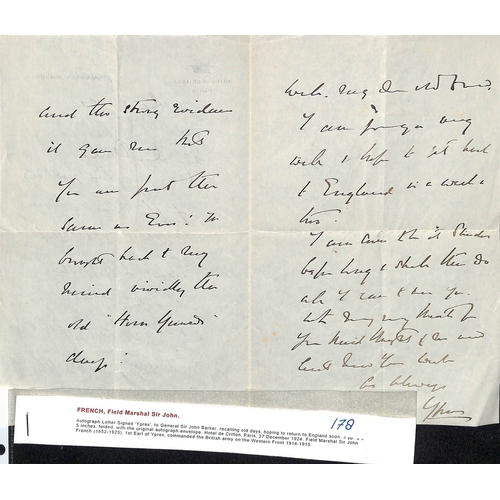 and the strong evidence
it gave me that
You are just the
same as Ever! It
brought back to my
mind vividly the
old "Horse Guards"
days!
with. my dear old friend.
I am going very
well & hope to get back
to England in a week or
two.
I am over the
before long & shall then do
all I can to see you
with very many thanks for
Your kind thought of me and
As always
Ypres
FRENCH, Field Marshal Sir John.
Autograph Letter Signed 'Ypres', to General Sir John Barker, recalling old days, hoping to return to England soon,
5 inches, folded, with the original autograph envelope. Hotel de Crillon, Paris, 27 December 1924. Field Marshal Sir John
French (1852-1925), 1st Earl of Ypres, commanded the British army on the Western Front 1914-1915.
178